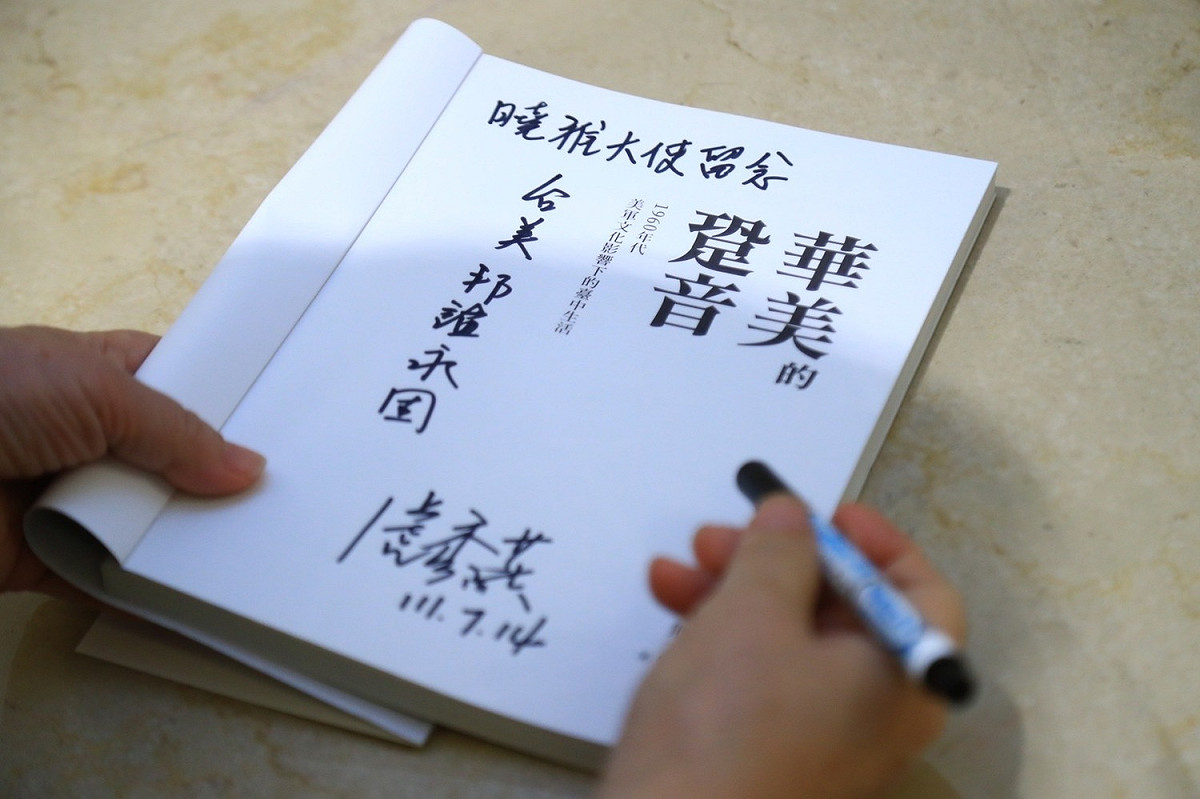 曉雅大使留念
台美
邦誼永固
盧秀燕
111.7.14
華美的
跫音
1960年代
美軍文化影響下的臺中生活